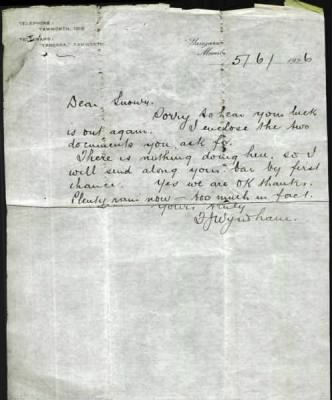 TELEPHONE:
TAMWORTH,
TELEGRAMS:
TAMWORTH
5/6/1926
Dear Snowy.
Sorry to hear your luck
is out again. I enclose the two
documents you ask for.
There is nothing doing here, so I
will send along your bar by first
chance. Yes we are OK thanks.
Plenty rain now - too much in fact.
Yours truly
Wyndham.